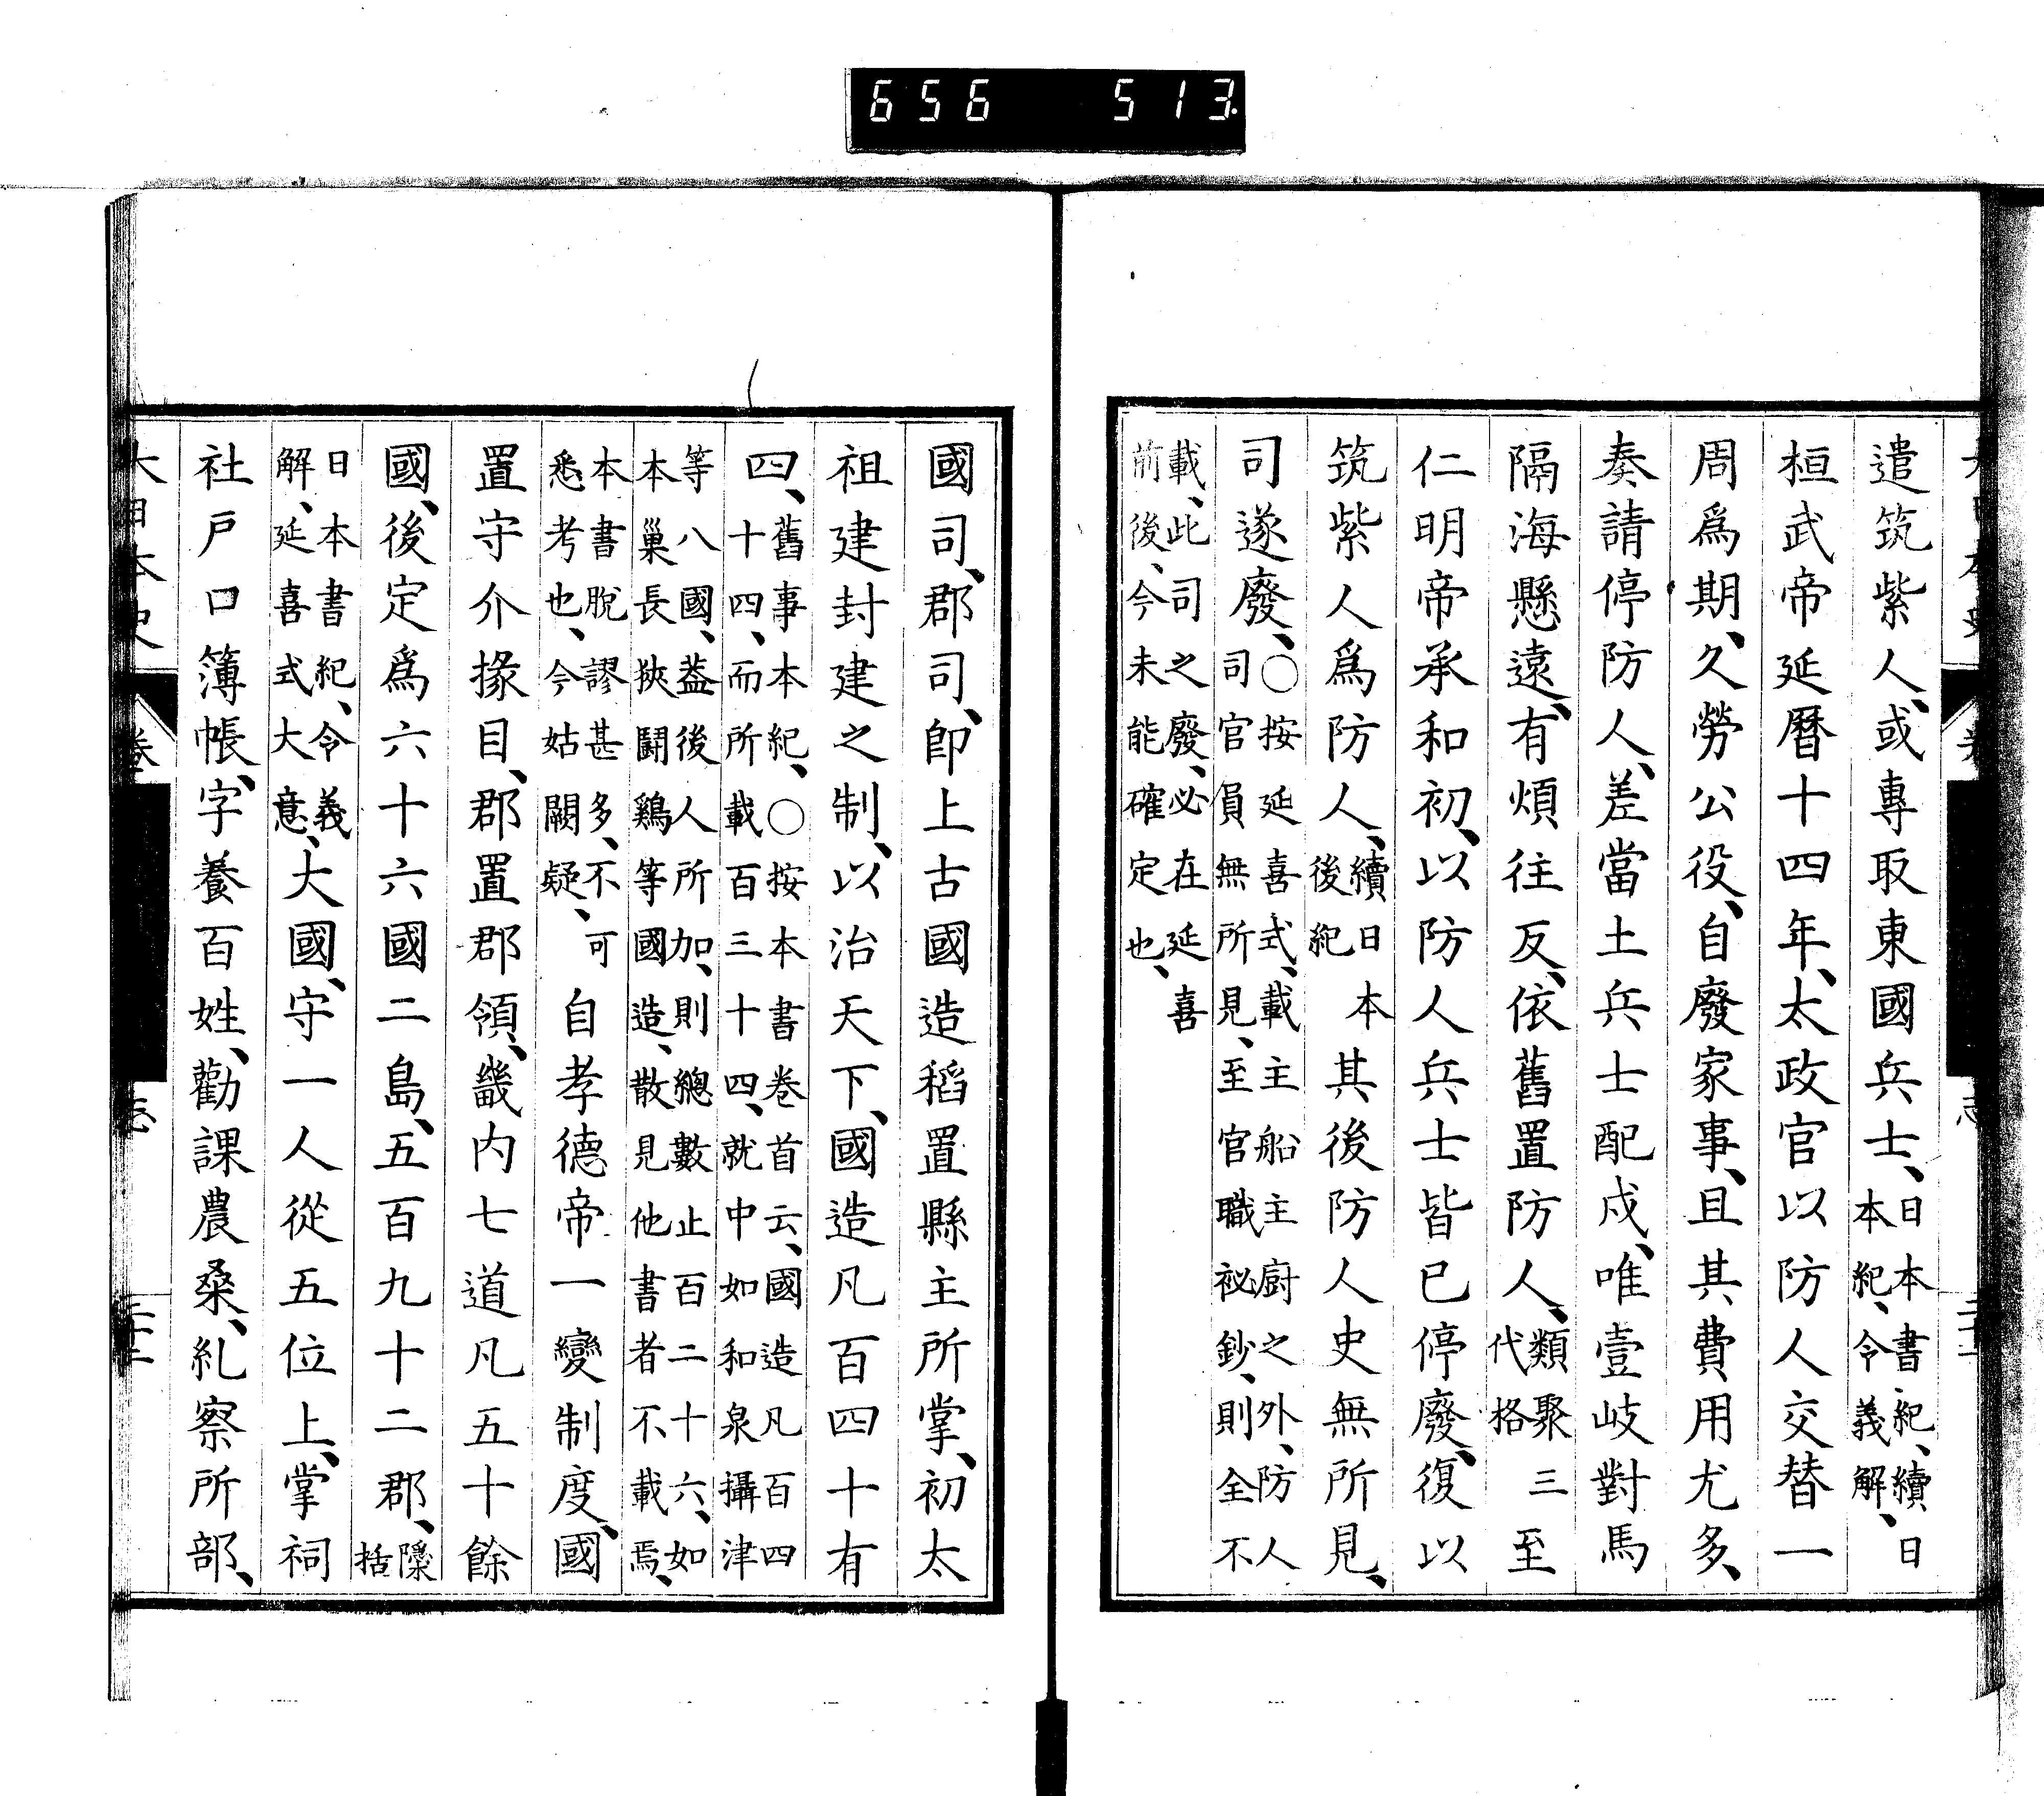 656 513.
遣筑紫人、或專取東國兵士、日本書紀、續日本紀、令義解、
桓武帝延暦十四年、太政官以防人交替一
周爲期、久勞公役、自廢家事、且其費用尤多、
奏請停防人、差當土兵士配戍、唯壹岐對馬
隔海懸遠、有煩往反、依舊置防人、類聚三代格至
仁明帝承和初、以防人兵士皆已停廢、復以
筑紫人爲防人、續日本後紀其後防人史無所見、
司遂廢、○按延喜式、載主船主廚之外、防人司官員無所見、至官職祕鈔、則全不
載、此司之廢、必在延喜前後、今未能確定也、
國司、郡司、卽上古國造稻置縣主所掌、初太
祖建封建之制、以治天下、國造凡百四十有
四、舊事本紀、○按本書卷首云、國造凡百四十四、而所載百三十四、就中如和泉攝津
等八國、蓋後人所加、則總數止百二十六、如本巢長狹鬪鷄等國造、散見他書者不載焉、
本書脫謬甚多、不可悉考也、今姑闕疑、自孝德帝一變制度、國
置守介掾目、郡置郡領、畿内七道凡五十餘
國、後定爲六十六國二島、五百九十二郡、隱括
日本書紀、令義解、延喜式大意、大國、守一人從五位上、掌祠
社戸口簿帳、字養百姓、勸課農桑、糺察所部、
大日本史 卷 志